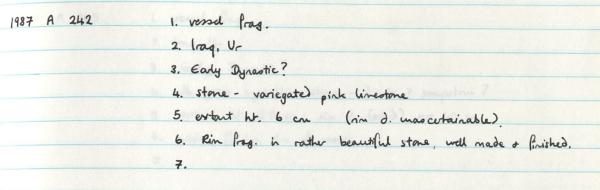 1987 A 242 1. vessel frag.
2. Iraq, Ur
3. Early Dynastic?
4. stone - variegated pink limestone
5. extant ht. 6 cm (rim d. unascertainable).
6. Rim frag. in rather beautiful stone, well made & finished.
7.